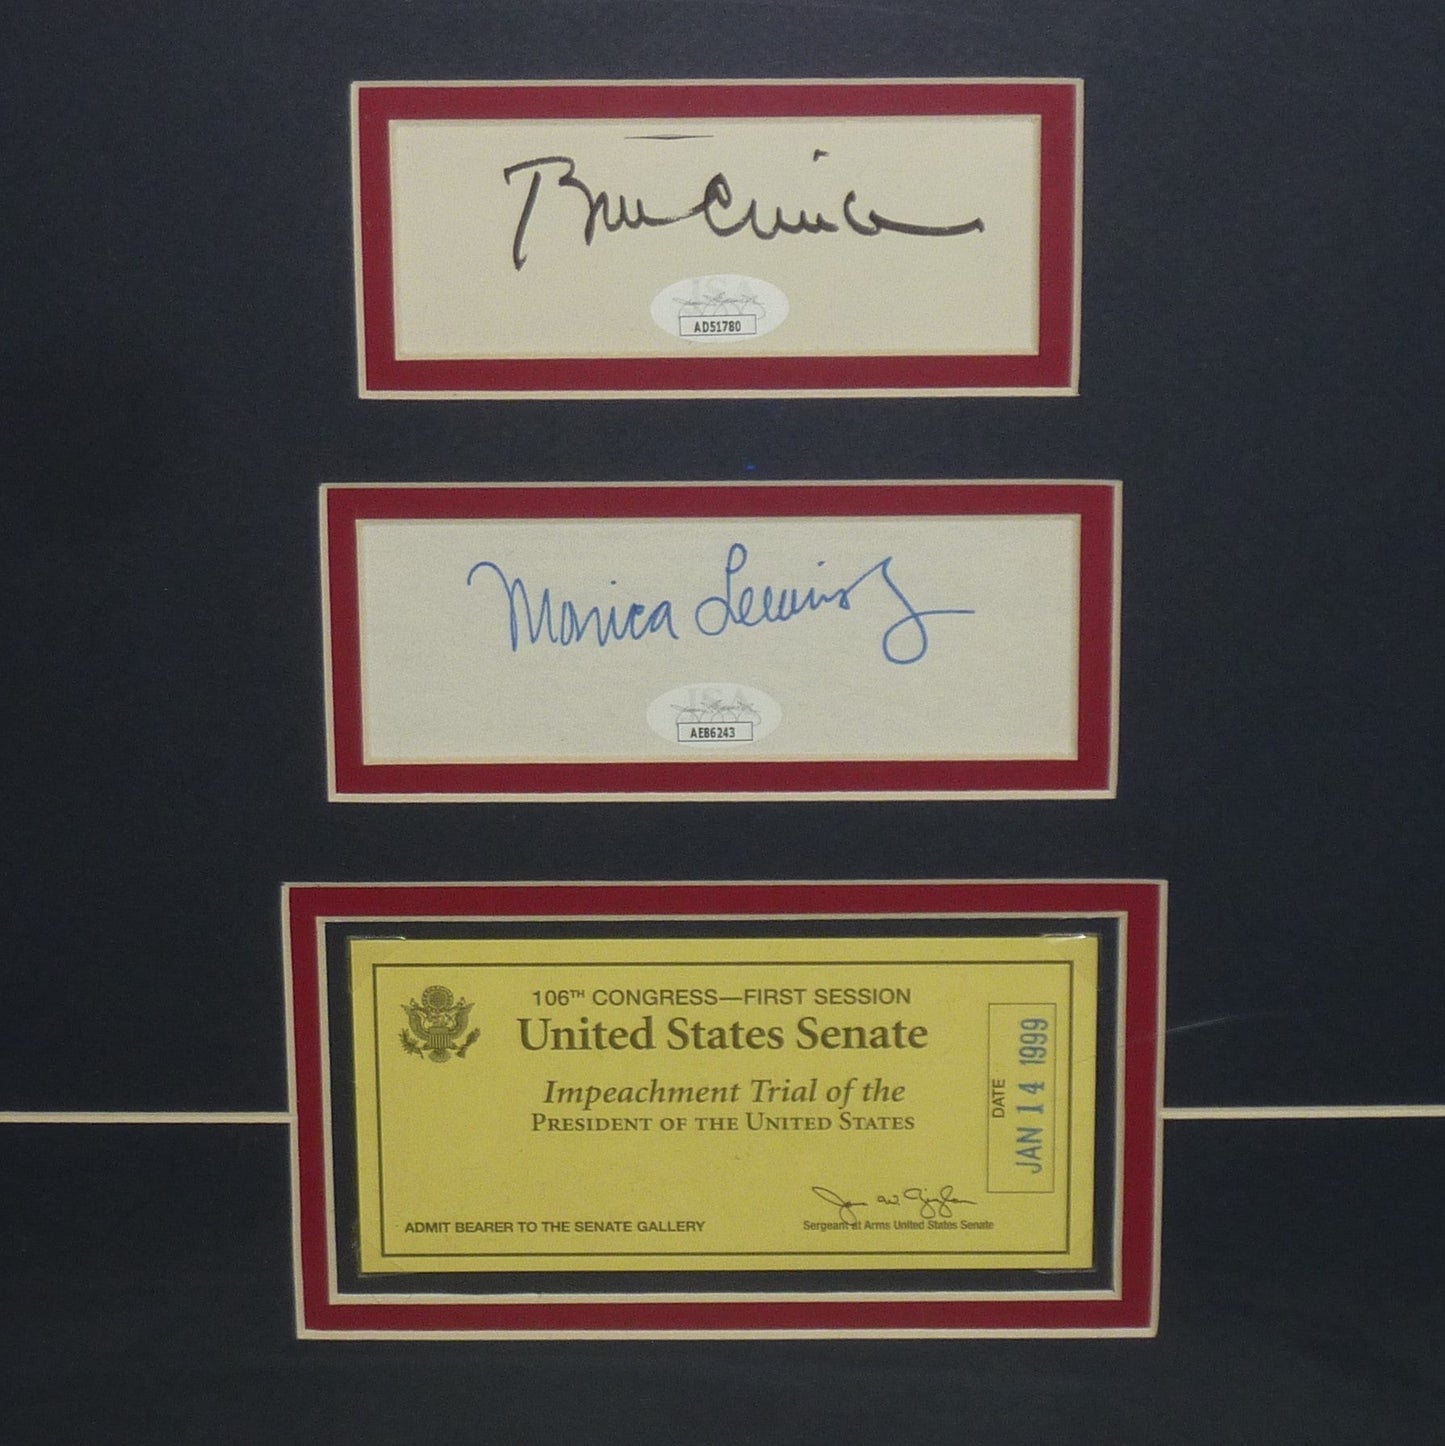 Bill Clinton
JSA
AD51780
Monica Lewinsky
JSA
AE86243
106TH CONGRESS—FIRST SESSION
United States Senate
Impeachment Trial of the
PRESIDENT OF THE UNITED STATES
DATE
JAN 14 1999
ADMIT BEARER TO THE SENATE GALLERY
Sergeant at Arms United States Senate